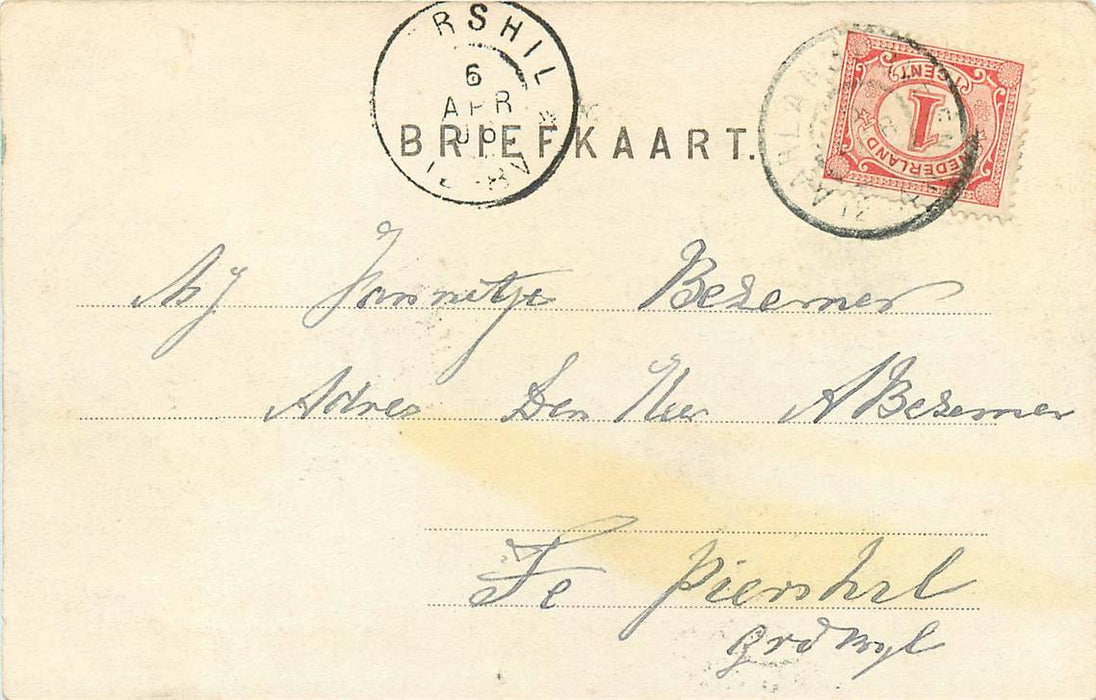 RSHIL
6
APR
BRIEFKAART.
1 CENT
1
NEDERLAND
Jannetje Bezemer
Adres Den Heer A Bezemer
Te Piershil